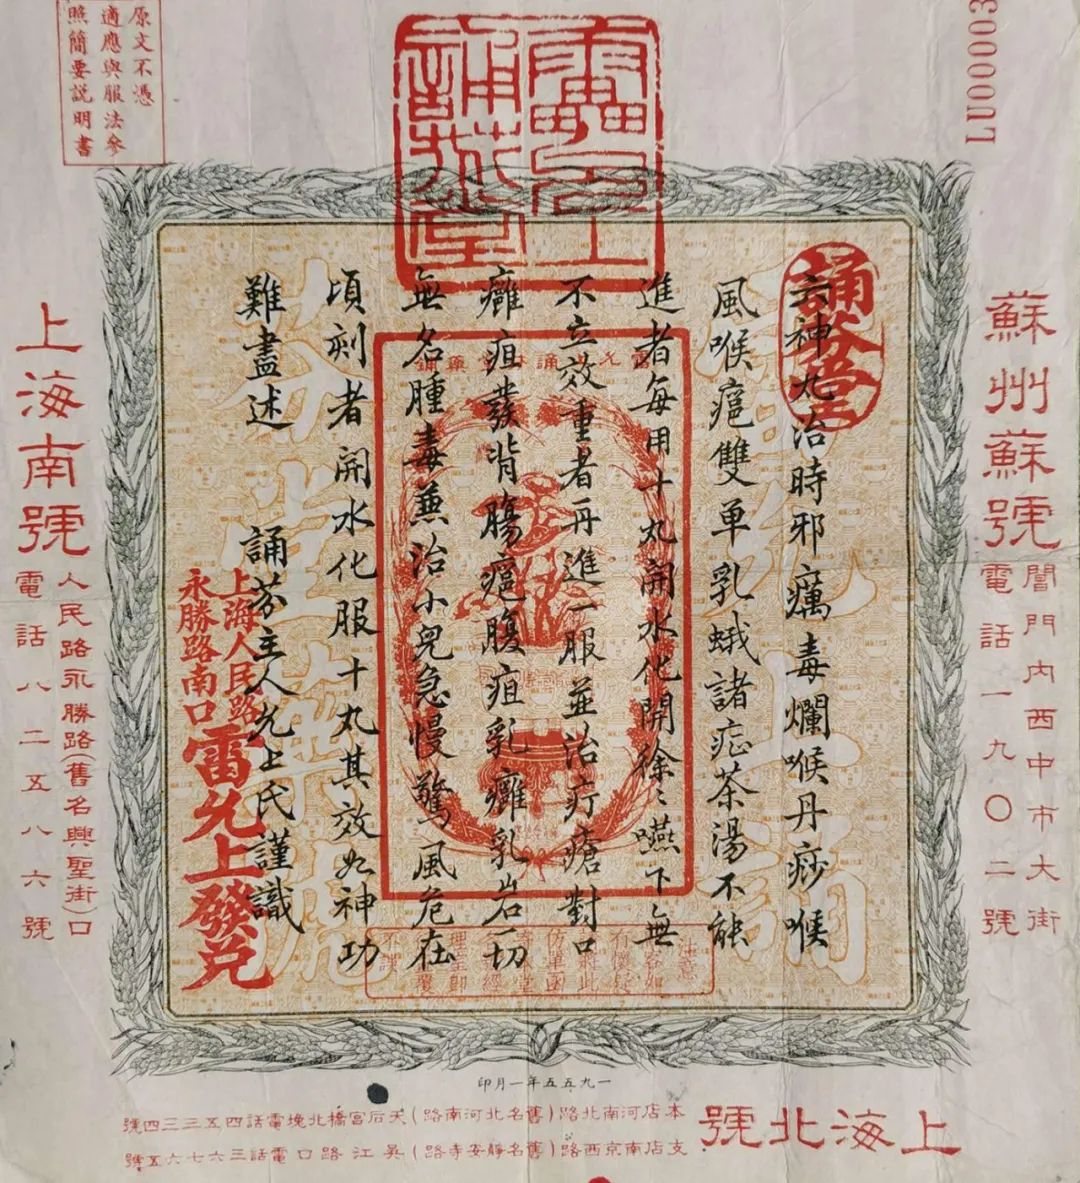 原文不憑
適應與服法參
照簡要說明書
LU00003
雷允上
誦芬堂
誦芬堂
六神丸治時邪癘毒爛喉丹痧喉
風喉痈雙單乳蛾諸症茶湯不能
進者每用十丸開水化開徐〻嚥下無
不立效重者再進一服並治疔瘡對口
癰疽發背腸癰腹疽乳癰乳岩一切
無名腫毒兼治小兒急慢驚風危在
頃刻者開水化服十丸其效如神功
難盡述 誦芬主人允上氏謹識
上海人民路
永勝路南口
雷允上發兌
蘇州蘇號
閶門內西中市大街
電話一九〇二號
上海南號
人民路永勝路(舊名興聖街)口
電話八二五八六號
一九五五年一月印
上海北號
本店河南北路(舊名北河南路)天后宮橋北堍電話四五三三四號
支店南京西路(舊名靜安寺路)吳江路口電話三六七六五號